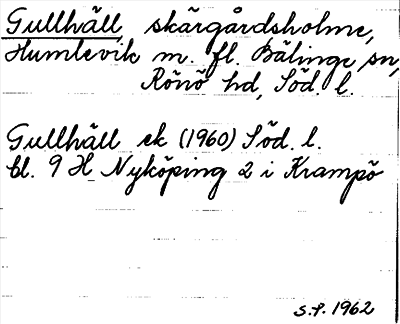 Gullhäll skärgårdsholme,
Humlevik m. fl. Bälinge sn,
Rönö hd, Söd. l.
Gullhäll ek (1960) Söd. l.
bl. 9 H Nyköping 2 i Krampö
S.P. 1962